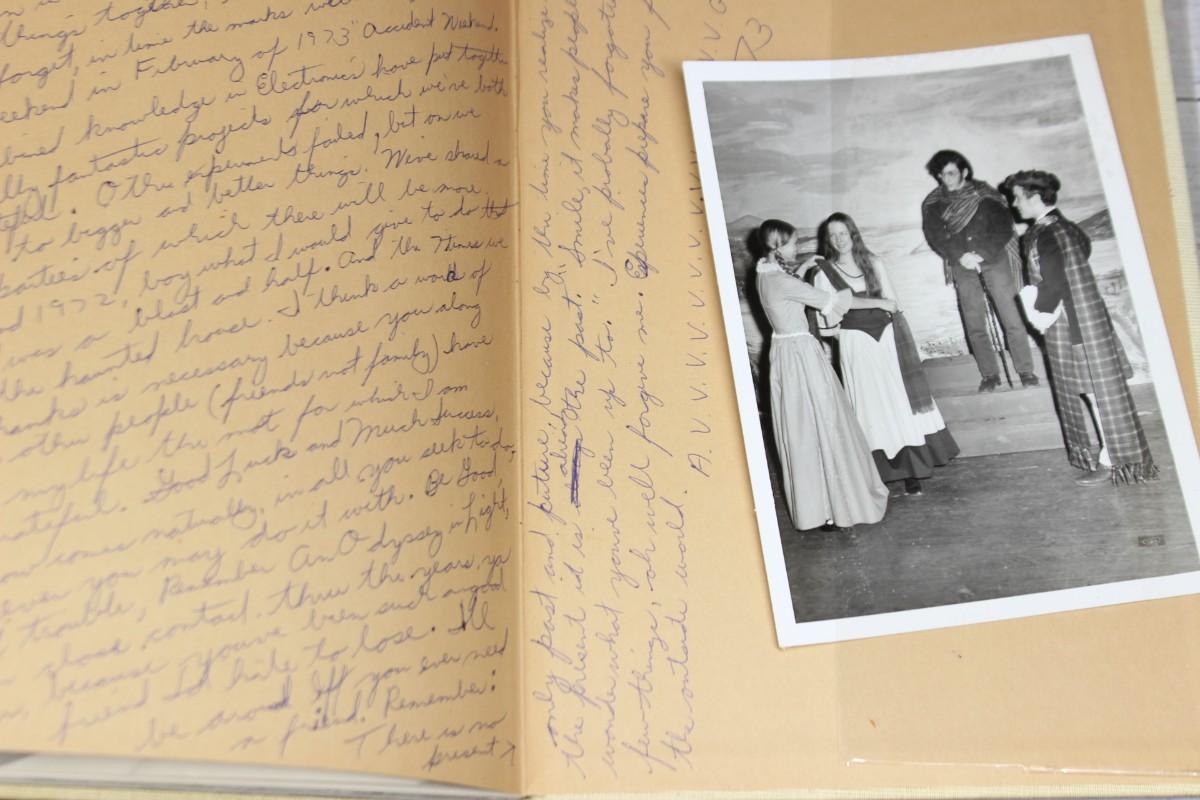 things together,
forget, in time the marks will
weekend in February of 1973 "Accident Weekend.
knowledge in Electronics have put together
fantastic projects for which we've both
Other experiments failed, but on we
to bigger and better things. We've shared
parties of which there will be more.
1972, boy what I would give to do that
was a blast and half. And the times we
the haunted house. I think a word of
thanks is necessary because you along
other people (friends not family) have
my life the most for which I am
grateful. Good Luck and Much Success,
comes naturally, in all you seek to do,
ever you may do it with. Be Good,
trouble, Remember An Odyssey in Light,
close contact. thru the years, ya
because you've been such a good
friend I'd hate to lose. I'll
be around if you ever need
a friend. Remember:
There is no
present >
only past and future, because by the time you realize
the present it is already the past." Smile, it makes people
wonder what you've been up to." I've probably forgotten
few things, oh well forgive me. Experiences prepare you f
the outside world. A.V.V.V.V.V.V.V.V.
73